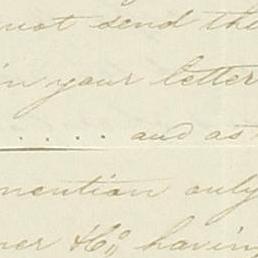 not send the
in your letter
..... and as
mention only
ner &Co, having